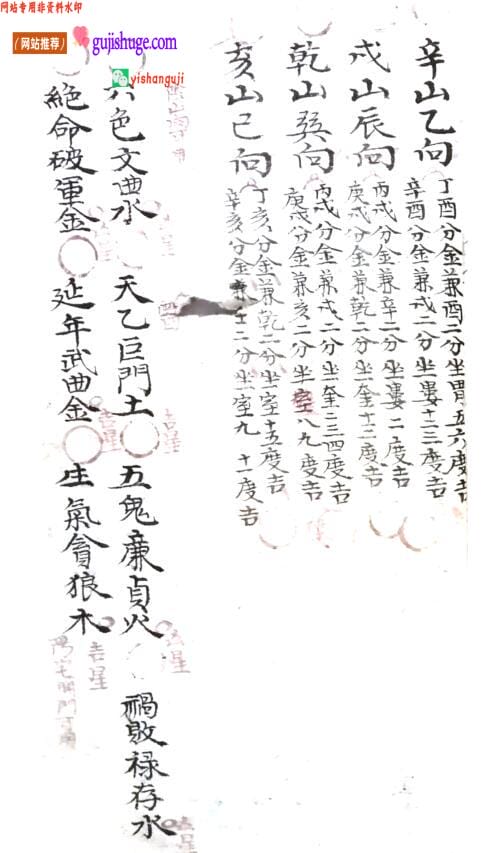 网站专用非资料水印
（网站推荐） gujishuge.com
yishanguji
辛山乙向
丁酉分金兼酉二分坐胃五六度吉
辛酉分金兼戌二分坐婁十三度吉
戌山辰向
丙戌分金兼辛二分坐婁二度吉
庚戌分金兼乾二分坐奎十三度吉
乾山巽向
丙戌分金兼戌二分坐奎三四度吉
庚戌分金兼亥二分坐室八九度吉
亥山巳向
丁亥分金兼乾二分坐室十五度吉
辛亥分金兼壬二分坐室九十一度吉
六色文曲水 天乙巨門土 五鬼廉貞火 禍敗禄存水
絶命破軍金 延年武曲金 生氣貪狼木
吉星
吉星
吉星
吉星